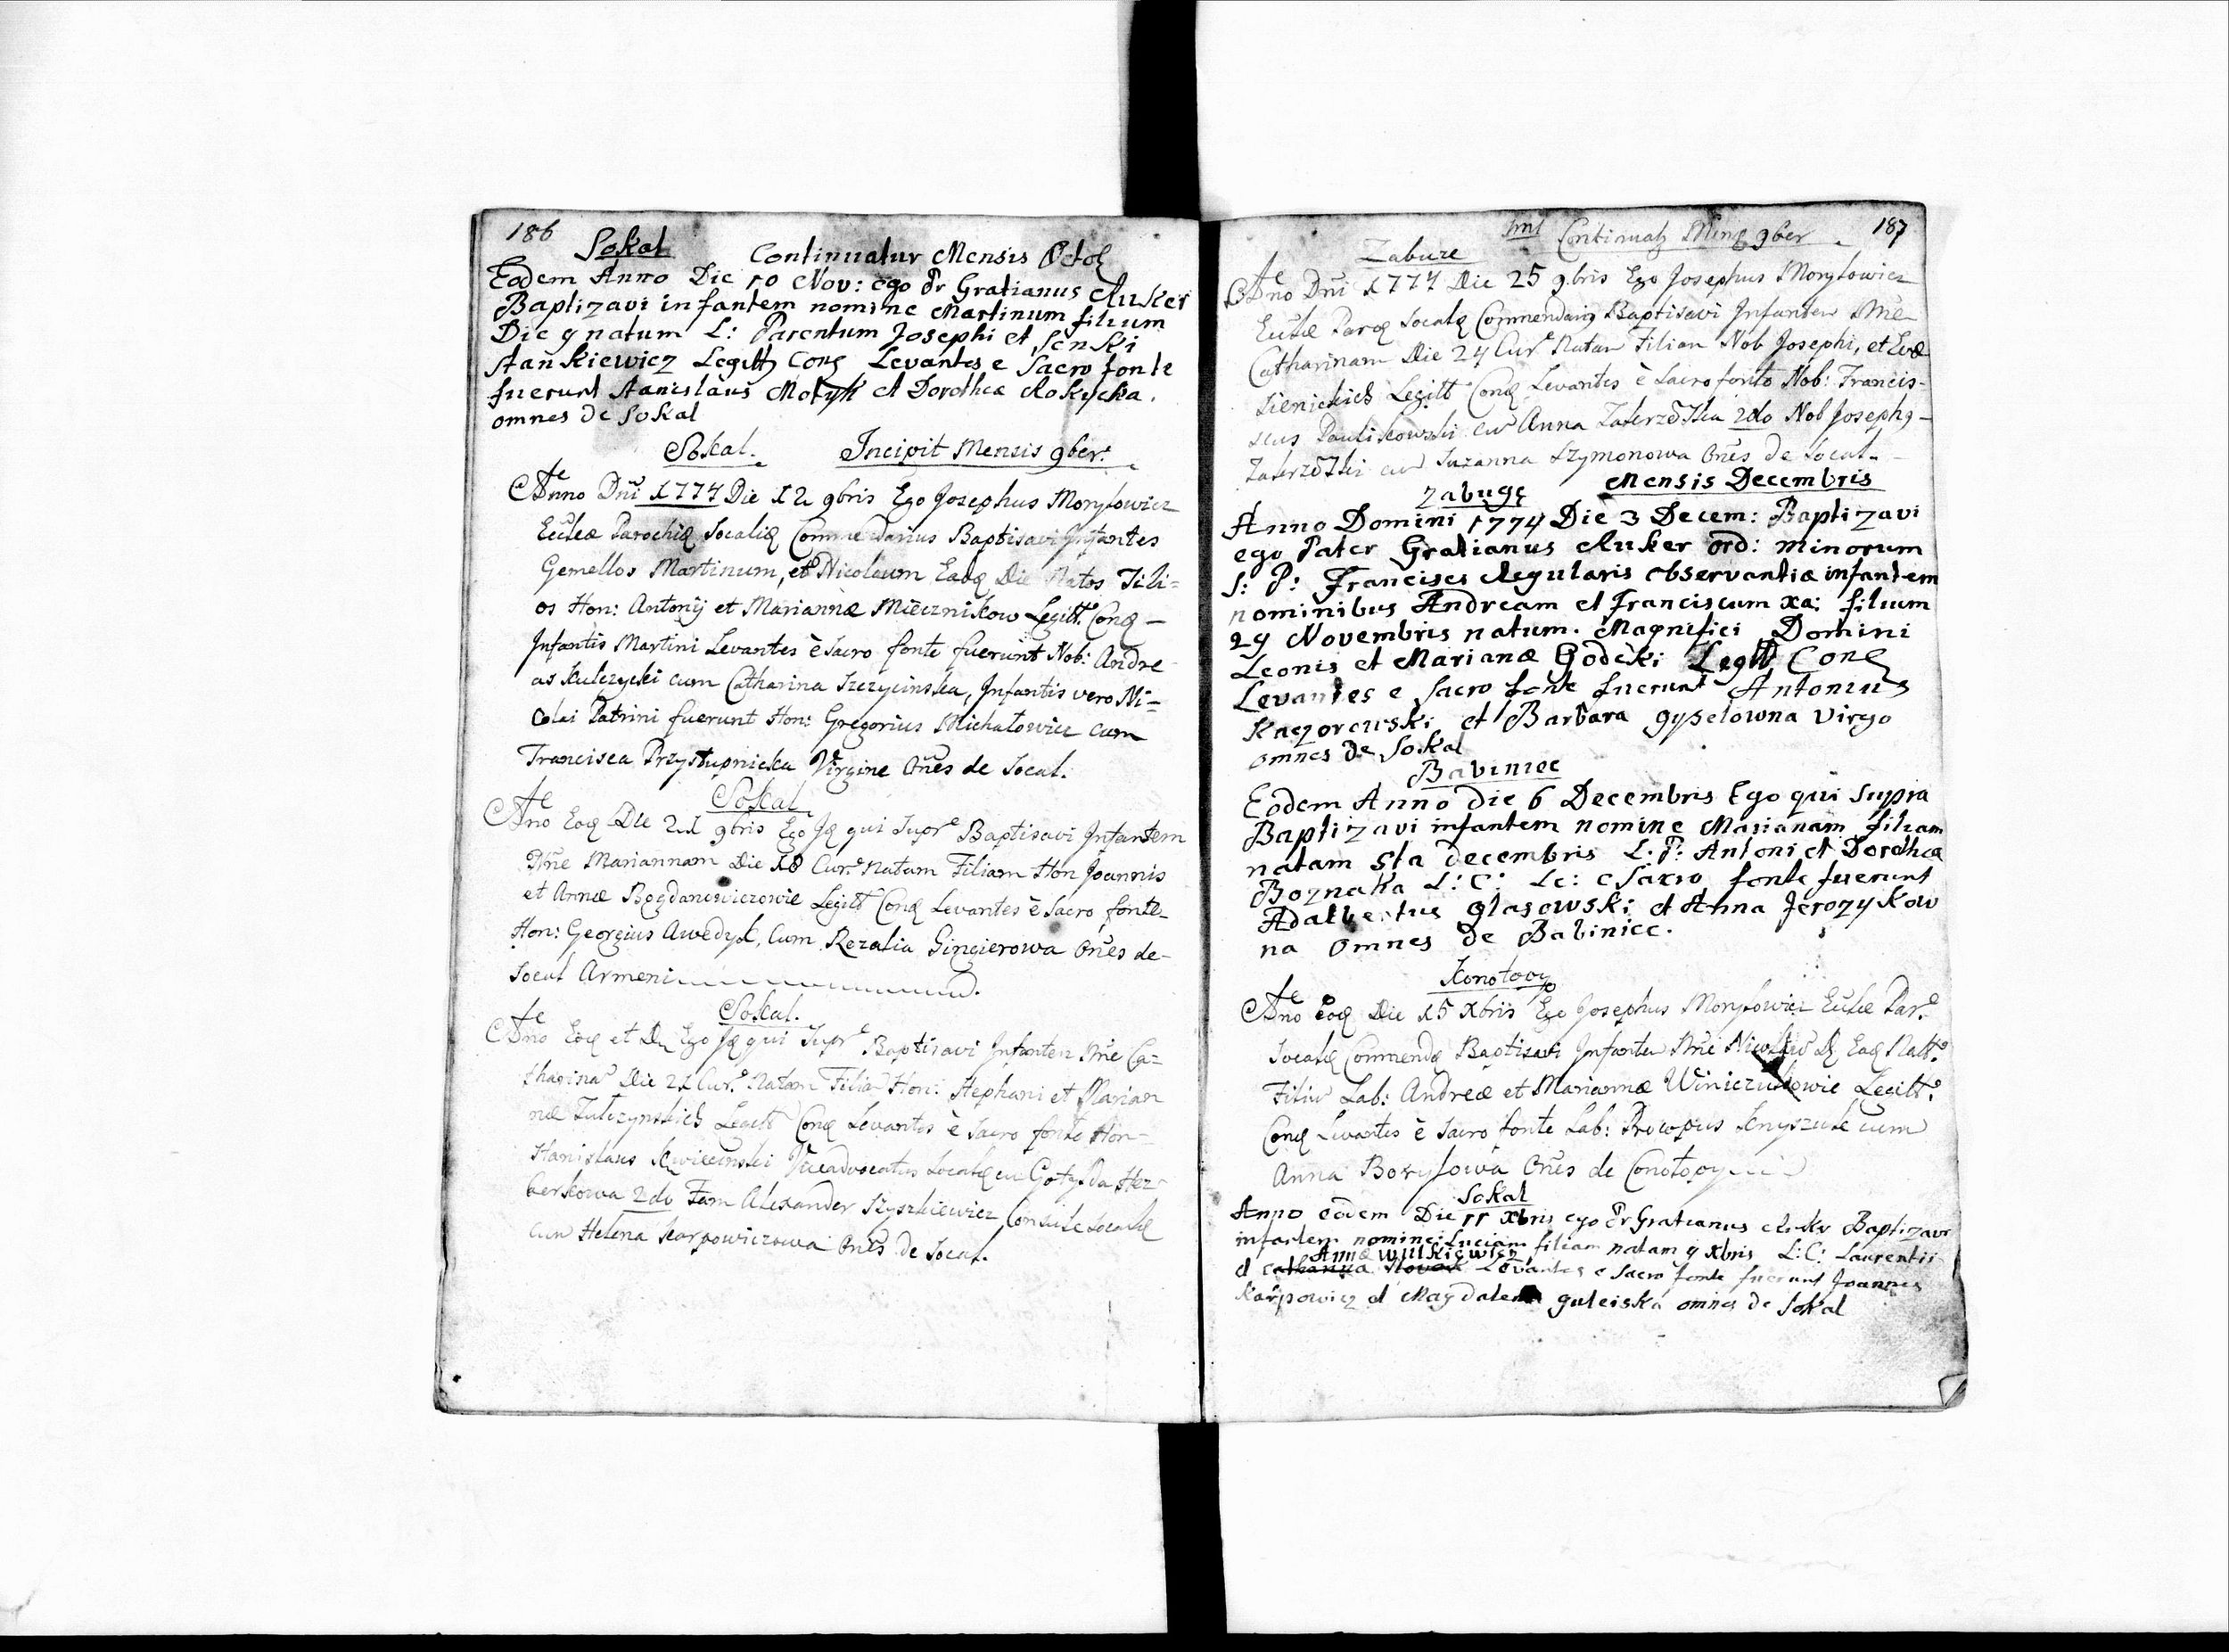 186
Sokal Continuatur Mensis Octob
Eodem Anno Die 10 Nov: ego Pr Gratianus Auker
Baptizavi infantem nomine Martinum filium
Die 9 natum L: Parentum Josephi et Senki
Stankiewicz Legitt Conq Levantes e Sacro fonte
fuerunt Stanislaus Motyk et Dorothea Rokycka.
omnes de Sokal
Sokal. Incipit Mensis 9ber.
Anno Dni 1774 Die 12 9bris Ego Josephus Moryłowicz
Eccłæ Parochiq Socaliq Commendarius Baptisavi Infantes
Gemellos Martinum, et Nicolaum Eadq Die Natos Fili=
os Hon: Antonij et Mariannæ Miecznikow Legitt. Conq —
Infantis Martini Levantes è Sacro fonte fuerunt Nob: Andre
as Kulczycki cum Catharina Szczycinska, Infantis vero Ni=
colai Patrini fuerunt Hon: Gregorius Michałowicz cum
Francisca Przystupnicka Virgine Ones de Socal.
Sokal
Ano Eoq Die 21 9bris Ego Jq qui Supr Baptisavi Infantem
Nne Mariannam Die 18 Cur. Natam Filiam Hon Joannis
et Annæ Bogdanowiczowie Legitt Conq Levantes è Sacro fonte
Hon: Georgius Awedyk, Cum Rozalia Gingierowa Ones de
Socal Armeni
Sokal.
Ano Eoq et D Ego Jq qui Supr Baptisavi Infanten Nne Ca=
tharina Die 21 Cur. Natam Filia Hon: Stephani et Marian
næ Tulczynskich Legitt Conq Levantes è Sacro fonte Hon=
Stanislaus Kwiecinski Viceadvocatus Socalq cu Gotysda Her
berkowa 2do Fam Alexander Szyszkiewicz Consule Socalq
cum Helena Karpowiczowa Ones de Socal.
187
Continuatq Minq 9ber
Zabuze
Ano Dni 1774 Die 25 9bris Ego Josephus Moryłowicz
Eccłæ Parq Socalq Commendariq Baptisavi Infanten Nne
Catharinam Die 24 Cur. Natam Filiam Nob Josephi, et Evæ
Sienickich Legitt Conq Levantes è Sacro fonte Nob: Francis-
scus Paulikowski cu Anna Zakrzoska 2do Nob Josephq -
Zakrzoski cu Suzanna Szymonowa Ones de Socal.
Zabuge Mensis Decembris
Anno Domini 1774 Die 3 Decem: Baptizavi
ego Pater Gratianus Auker ord: minorum
S: P: Francisci Regularis observantiæ infantem
nominibus Andream et Franciscum xa: filium
29 Novembris natum. Magnifici Domini
Leonis et Marianæ Godecki Legitt Conq
Levantes e Sacro fonte fuerunt Antonius
Kaczorowski et Barbara gyselowna Virgo
omnes de Sokal
Babiniec
Eodem Anno die 6 Decembris Ego qui Supra
Baptizavi infantem nomine Marianam filiam
natam 5ta decembris L: P: Antoni et Dorothea
Boznaka L: C: Le: e Sacro fonte fuerunt
Adalbertus glasowski et Anna Jerozykow
na omnes de Babiniec.
Konotopy
Ano Eoq Die 15 Xbris Ego Josephus Moryłowicz Eccłæ Par.
Socalq Commendq Baptisavi Infanten Nne Eaq Natt.
Filiu Lab: Andreæ et Mariannæ Winiczukowie Legitt.
Conq Levantes è Sacro fonte Lab: Prowpus Knyszuk cum
Anna Boryłowa Ones de Conotopy
Sokal
Anno eodem Die 11 Xbris ego Pr Gratianus Auker Baptizavi
infantem nomine Luciam filiam natam 9 Xbris L: C: Laurentii
Annæ Wilkiewicz
et Catharina Novak Levantes e Sacro fonte fuerunt Joannes
Karpowicz et Magdalena guleiska omnes de Sokal